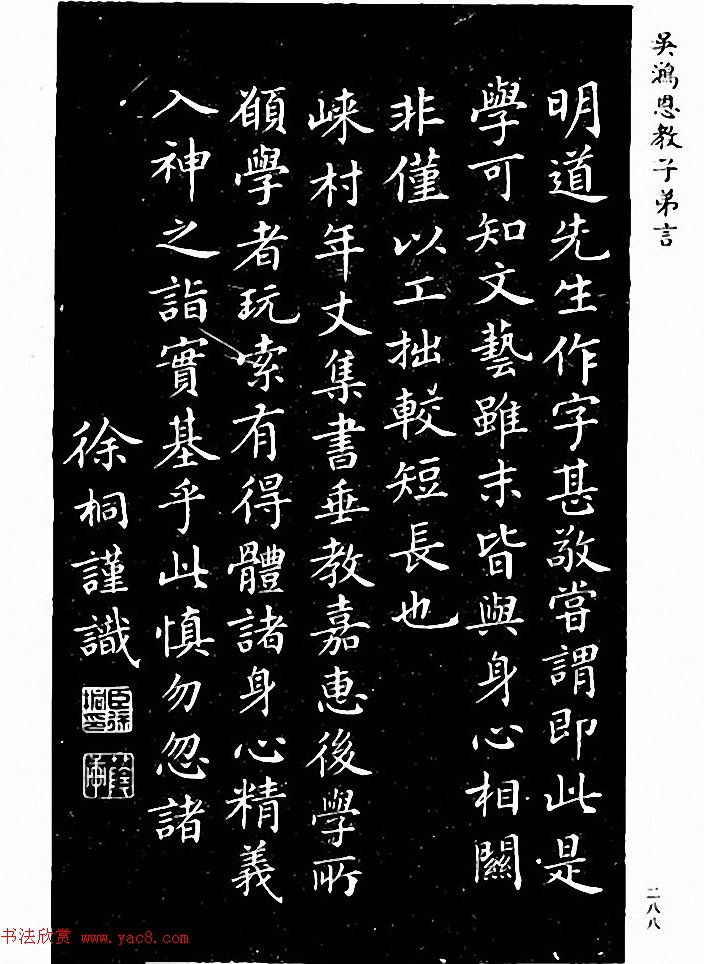 吳鴻恩教子弟言
明道先生作字甚敬嘗謂即此是
學可知文藝雖末皆與身心相關
非僅以工拙較短長也
崍村年丈集書垂教嘉惠後學所
願學者玩索有得體諸身心精義
入神之詣實基乎此慎勿忽諸
徐桐謹識
二八八
书法欣赏 www.yac8.com